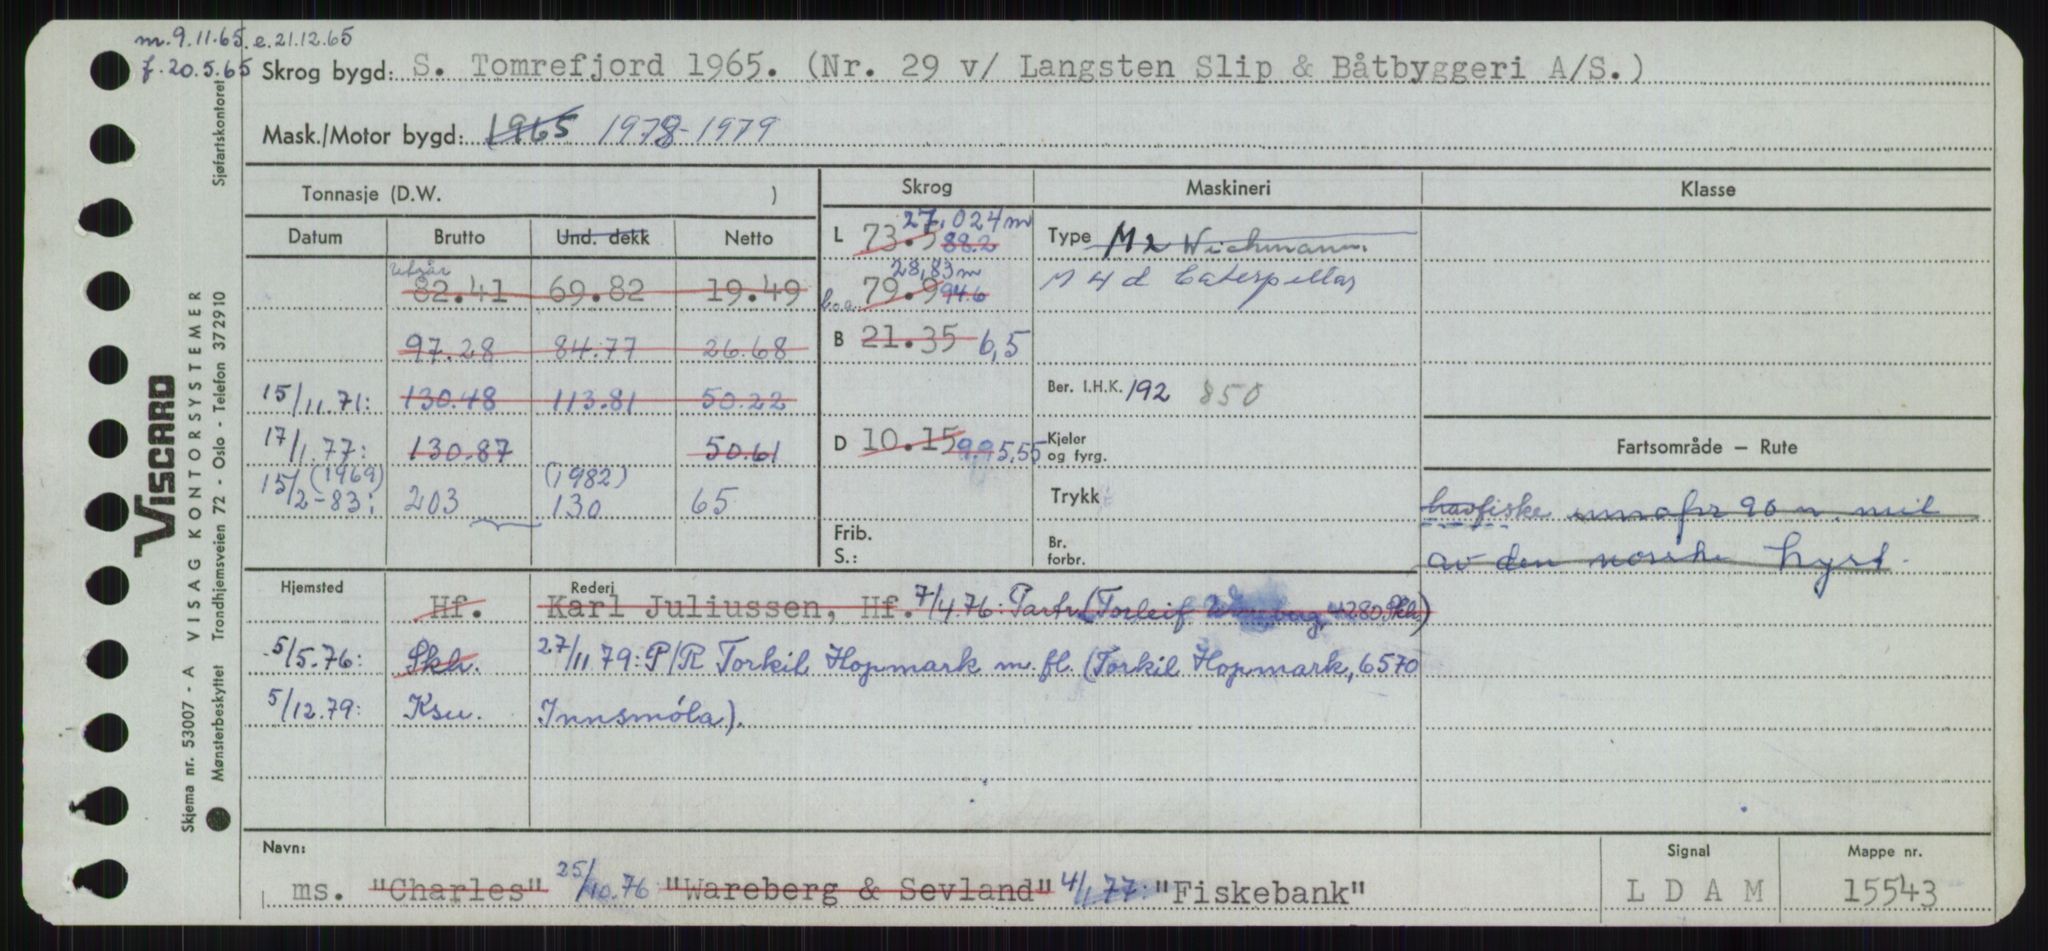 m. 9.11.65. e. 21.12.65
f. 20.5.65 Skrog bygd: S. Tomrefjord 1965. (Nr. 29 v/ Langsten Slip & Båtbyggeri A/S.)
Mask./Motor bygd: 1965 1978-1979
Tonnasje (D.W. ) Skrog Maskineri Klasse
Datum Brutto Und. dekk Netto
L 73.5 88.2 27,024 m
Type M 2 Wichmann.
utgår
82.41 69.82 19.49
l.o.a. 79.9 94.6 28,83 m
M 4 d Caterpillar
97.28 84.77 26.68
B 21.35 6,5
15/11.71: 130.48 113.81 50.22
Ber. I.H.K. 192 850
17/1.77: 130.87 50.61
D 10.15 9.9 5,55
Kjeler og fyrg.
Fartsområde – Rute
15/2-83: (1969) 203 (1982) 130 65
Trykk
havfiske innafor 90 n. mil
Frib. S.:
Br. forbr.
av den norske kyst.
Hjemsted Rederi
Hf. Karl Juliussen, Hf. 7/4.76: Partr. (Torleif 4280 Skh.)
5/5.76: Skh. 27/11.79: P/R Torkil Hopmark m. fl. (Torkil Hopmark, 6570
5/12.79: Ksu. Innsmøla).
Navn: Signal Mappe nr.
ms. "Charles" 25/10.76 "Wareberg & Sevland" 4/1.77: "Fiskebank" L D A M 15543
VISCARD
Skjema nr. 53007 - A VISAG KONTORSYSTEMER Sjøfartskontoret
Mønsterbeskyttet Trondhjemsveien 72 - Oslo - Telefon 372910